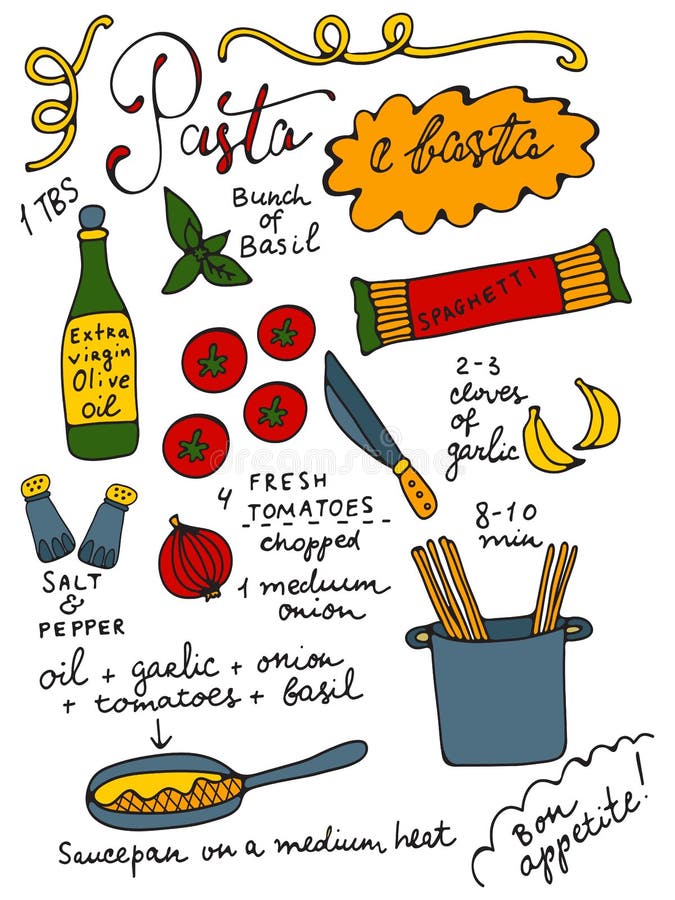 Pasta
e basta
1 TBS
Bunch
of
Basil
Extra
virgin
Olive
oil
SPAGHETTI
2-3
cloves
of
garlic
4 FRESH
TOMATOES
chopped
8-10
min
SALT
&
PEPPER
1 medium
onion
oil + garlic + onion
+ tomatoes + basil
Saucepan on a medium heat
Bon
appetite!
dreamstime